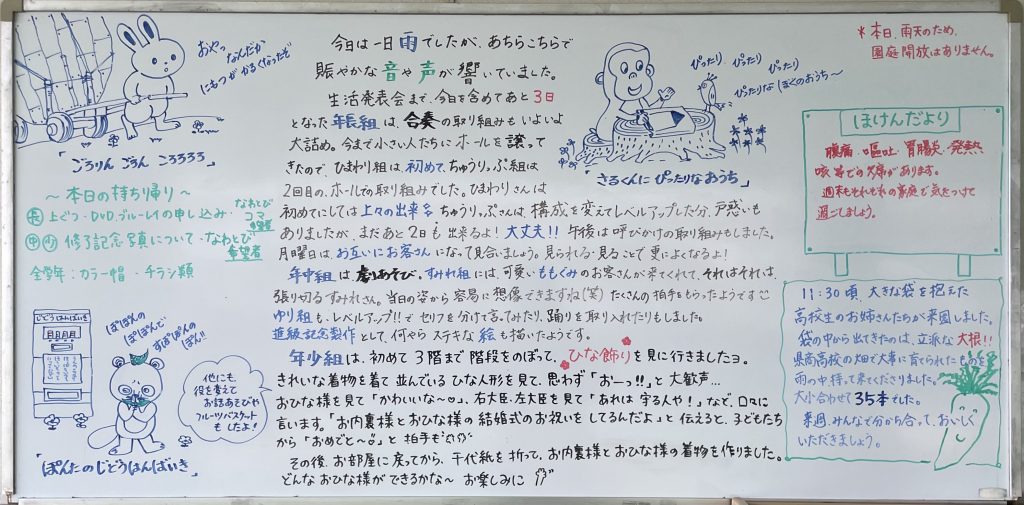 おやっ
なんだか
にもつが かるくなったぞ
「ごろりん ごろん ころろろろ」
～本日の持ち帰り～
㊐上ぐつ・DVD、ブルーレイの申し込み・なわとび
コマ
希望者
㊥㊛修了記念写真について・なわとび
希望者
全学年：カラー帽・チラシ類
じどうはんばいき
ぽぽんの
ぽんぽんで
すぽぽんの
ぽん!!
他にも、
役を変えて
お話あそびや
フルーツバスケット
もしたよ!
「ぽんたのじどうはんばいき」
今日は一日雨でしたが、あちらこちらで
賑やかな音や声が響いていました。
生活発表会まで、今日を含めてあと3日
となった年長組は、合奏の取り組みもいよいよ
大詰め。今まで小さい人たちにホールを譲って
きたので、ひまわり組は、初めて、ちゅうりっぷ組は
2回目の、ホールでの取り組みでした。ひまわりさんは
初めてにしては上々の出来、ちゅうりっぷさんは、構成を変えてレベルアップした分、戸惑いも
ありましたが、まだあと2日も出来るよ!大丈夫!!午後は呼びかけの取り組みもしました。
月曜日は、お互いにお客さんになって見合いましょう。見られる・見ることで更によくなるよ!
年中組は劇あそび。すみれ組には、可愛いももぐみのお客さんが来てくれて、それはそれは、
張り切るすみれさん。当日の姿から容易に想像できますね(笑)たくさんの拍手をもらったようです
ゆり組も、レベルアップ!!でセリフを分けて言ってみたり、踊りを取り入れたりもしました。
進級記念製作として、何やらステキな絵も描いたようです。
年少組は、初めて3階まで階段をのぼって、ひな飾りを見に行きましたヨ。
きれいな着物を着て並んでいるひな人形を見て、思わず「おーっ!!」と大歓声…
おひな様を見て「かわいいな～♡」、右大臣・左大臣を見て「あれは守る人や!」など、口々に
言います。「お内裏様とおひな様の結婚式のお祝いをしてるんだよ」と伝えると、子どもたち
から「おめでと～」と拍手も
その後、お部屋に戻ってから、千代紙を折って、お内裏様とおひな様の着物を作りました。
どんなおひな様ができるかな～ お楽しみに
ぴったり、ぴったり
ぴったり
ぴったりな ぼくのおうち～
「さるくんにぴったりなおうち」
＊本日、雨天のため、
園庭開放はありません。
ほけんだより
腹痛、嘔吐、胃腸炎、発熱
咳等での欠席があります。
週末もそれぞれの家庭で気をつけて
過ごしましょう。
11:30頃、大きな袋を抱えた
高校生のお姉さんたちが来園しました。
袋の中から出てきたのは、立派な大根!!
県商高校の畑で大事に育てられたものを
雨の中、持って来てくださりました。
大小合わせて35本でした。
来週、みんなで分け合って、おいしく
いただきましょう。